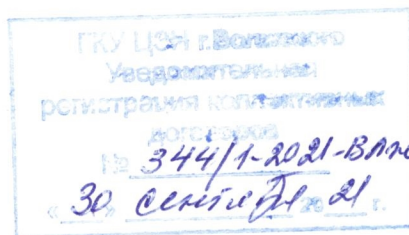 ГКУ ЦЗН г.Волжского
Уведомительная
регистрация коллективных
договоров
№ 344/1-2021-Влж
« 30 » сентября 2021 г.